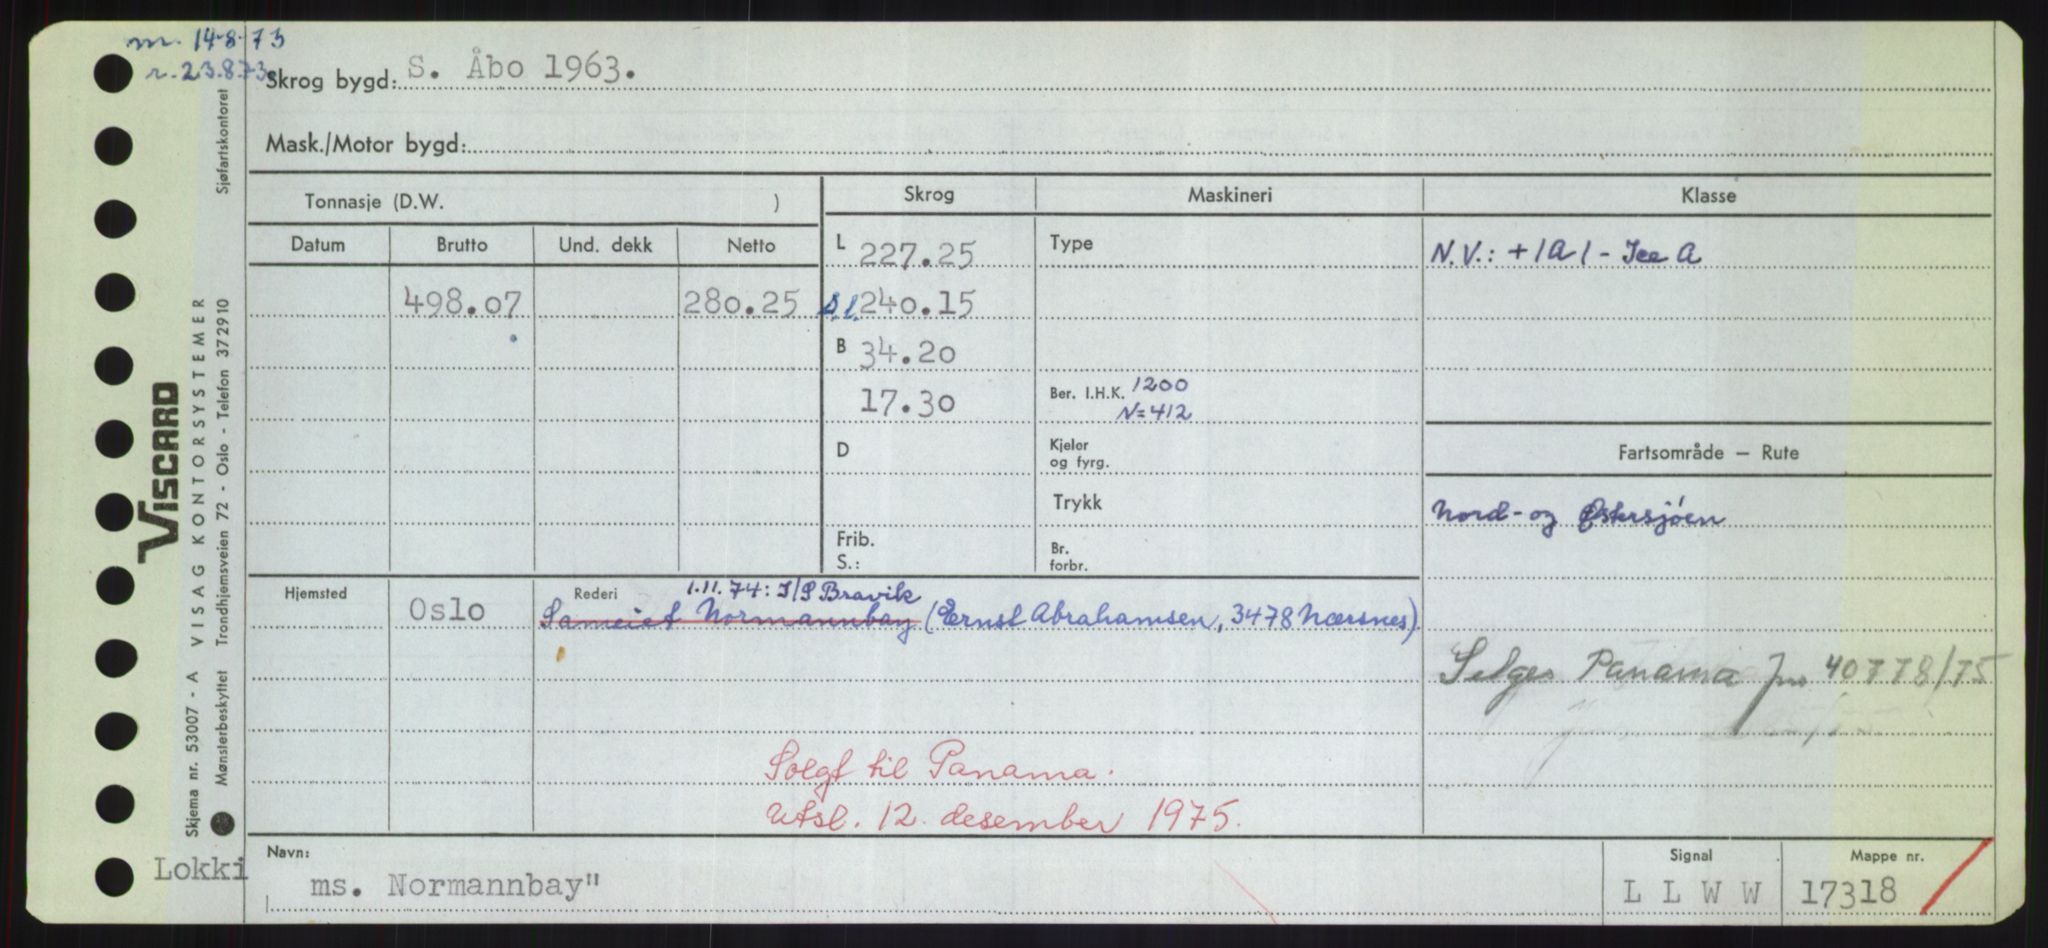 m. 14-8-73
r. 23.8.73
Skrog bygd: S. Åbo 1963.
Mask./Motor bygd:
Tonnasje (D.W. )
Skrog
Maskineri
Klasse
Datum
Brutto
Und. dekk
Netto
L 227.25
Type
N.V.: +1A1 - Ice A
498.07
280.25
S.l. 240.15
B 34.20
17.30
Ber. I.H.K. 1200
N=412
D
Kjeler
og fyrg.
Fartsområde — Rute
Trykk
Nord- og Østersjøen
Frib.
S.:
Br.
forbr.
Hjemsted
Oslo
Rederi
1.11.74: I/S Bravik
Sameiet Normannbay (Ernst Abrahamsen, 3478 Nærsnes).
Selges Panama Jnr 40778/75
Solgt til Panama.
Utsl. 12. desember 1975.
Navn:
Lokki
ms. Normannbay"
Signal
L L W W
Mappe nr.
17318
VISCARD
Skjema nr. 53007 - A VISAG KONTORSYSTEMER
Mønsterbeskyttet Trondhjemsveien 72 - Oslo - Telefon 372910
Sjøfartskontoret